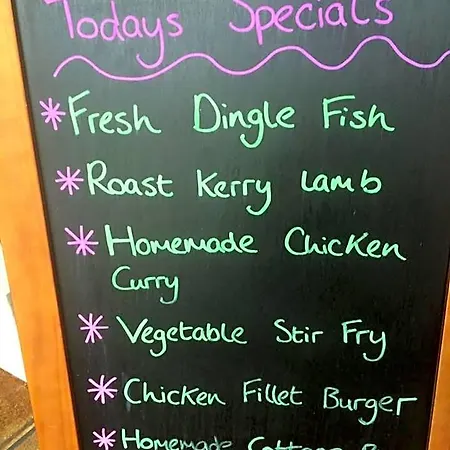 Todays Specials
*Fresh Dingle Fish
*Roast Kerry Lamb
*Homemade Chicken
Curry
*Vegetable Stir Fry
*Chicken Fillet Burger
*Homemade Cottage